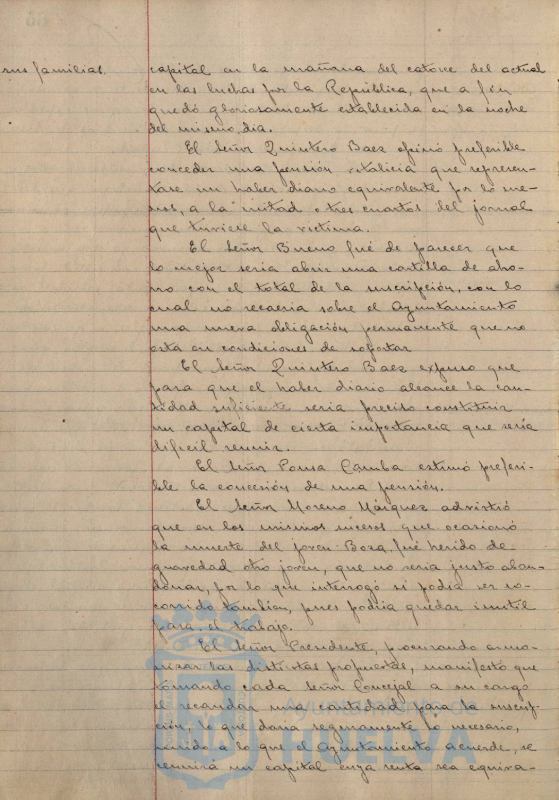 sus familias.
capital en la mañana del catorce del actual
en las luchas por la República, que a fin
quedó gloriosamente establecida en la noche
del mismo dia.
El Señor Quintero Baez opinó preferible
conceder una pensión vitalicia que represen-
tase un haber diario equivalente por lo me-
nos, a la mitad o tres cuartos del jornal
que tuviese la victima.
El Señor Bueno fué de parecer que
lo mejor seria abrir una cartilla de aho-
rro con el total de la suscripción, con lo
cual no recaeria sobre el Ayuntamiento
una nueva obligación permanente que no
está en condiciones de soportar
El Señor Quintero Baez expuso que
para que el haber diario alcance la can-
tidad suficiente seria preciso constituir
un capital de cierta importancia que seria
dificil reunir.
El Señor Ponsa Camba estimó preferi-
ble la concesión de una pensión.
El Señor Moreno Márquez advirtió
que en los mismos sucesos que ocasionó
la muerte del joven Boza, fué herido de
gravedad otro joven, que no seria justo aban-
donar, por lo que interrogó si podia ser so-
corrido tambien, pues podria quedar inutil
para el trabajo.
El Señor Presidente, procurando armo-
nizar las distintas propuestas, manifestó que
tomando cada Señor Concejal a su cargo
el recaudar una cantidad para la suscrip-
ción, lo que daria seguramente lo necesario,
unido a lo que el Ayuntamiento acuerde, se
reunirá un capital cuya renta sea equiva-
Ayuntamiento de
HUELVA